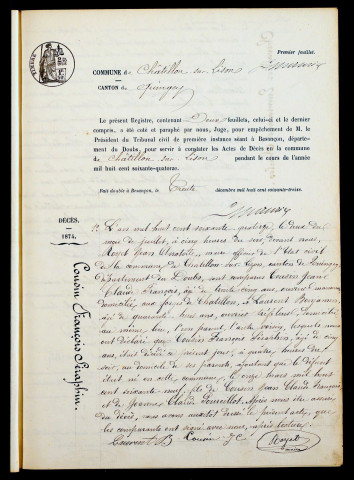 Premier feuillet.
COMMUNE de Châtillon sur Lison
CANTON de Quingey
Le présent Registre, contenant Deux feuillets, celui-ci et le dernier
compris, a été coté et paraphé par nous, Juge, pour empêchement de M. le
Président du Tribunal civil de première instance séant à Besançon, départe-
ment du Doubs, pour servir à constater les Actes de Décès en la commune
de Châtillon sur Lison pendant le cours de l'année
mil huit cent soixante-quatorze.
Fait double à Besançon, le Trente décembre mil huit cent soixante-treize.
DÉCÈS.
1874.
Cousin François Séraphin.
L'an mil huit cent soixante quatorze, le deux du
mois de juillet, à cinq heures du soir, devant nous,
maire officier de l'Etat civil
de la commune de Châtillon sur Lison, canton de Quingey
département du Doubs, sont comparus Cousin Jean
Claude François, âgé de trente cinq ans,
domicilié aux forges de Châtillon, et Laurent
âgé de quarante huit ans, domicilié
au même lieu, l'un père, l'autre voisin, lesquels nous
ont déclaré que Cousin François Séraphin, âgé de cinq
ans, était décédé le présent jour, à quatre heures du
soir, au domicile de ses parents, ajoutant que le défunt
était né en cette commune, le mil huit cent
soixante neuf, fils de Cousin Jean Claude François
et de Jeanne Claude . Après nous être assuré
du décès, nous avons aussitôt dressé le présent acte, que
les comparants ont signé avec nous, après lecture.
Laurent B Cousin J C